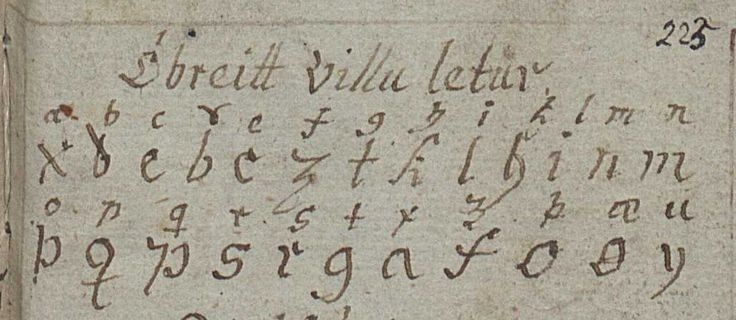 225
Óbreitt Villu letur.
a b c d e f g h i k l m n
x d e b c z t k l h i n m
o p q r s t x z þ æ u
þ q p s r g a f o ø y